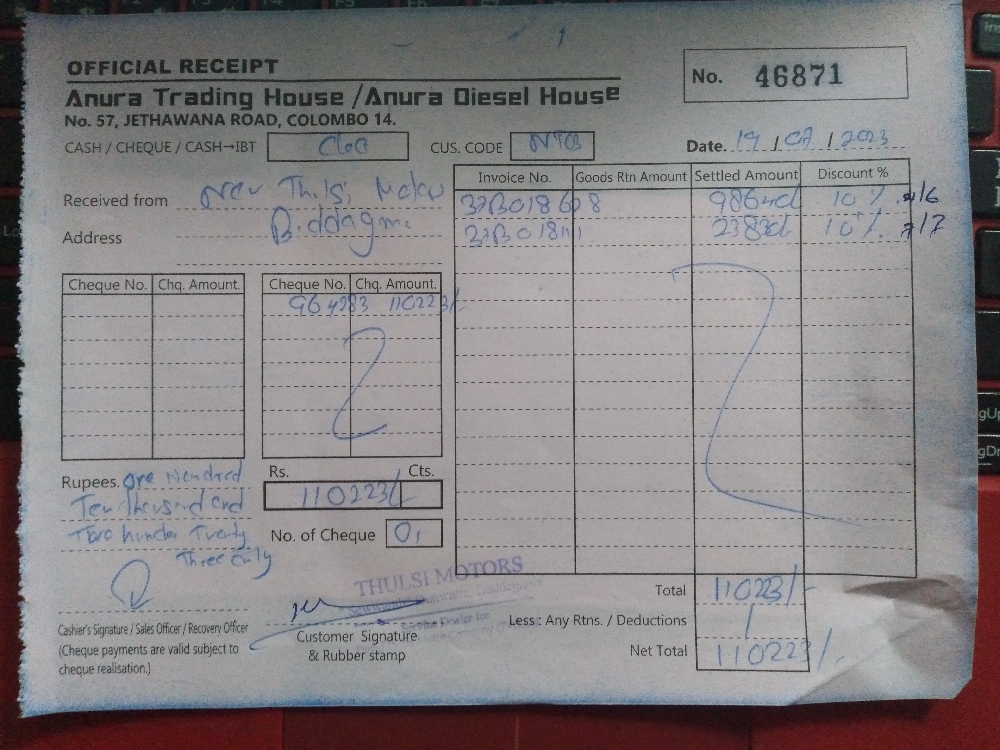 OFFICIAL RECEIPT
No. 46871
Anura Trading House / Anura Diesel House
No. 57, JETHAWANA ROAD, COLOMBO 14.
CASH / CHEQUE / CASH→IBT
CUS. CODE
Date. / 07 / 2023
Received from New
Address
Invoice No. Goods Rtn Amount Settled Amount Discount %
10 %
10 %. 7/7
Cheque No. Chq. Amount. Cheque No. Chq. Amount.
964283 110223/-
Rupees. One Hundred
Ten Thousand and
Two Twenty
Three Only
Rs. Cts.
110223/-
No. of Cheque 01
THULSI MOTORS
Total 110223/-
Less : Any Rtns. / Deductions
Net Total 110223/-
Cashier's Signature / Sales Officer / Recovery Officer
(Cheque payments are valid subject to
cheque realisation.)
Customer Signature
& Rubber stamp